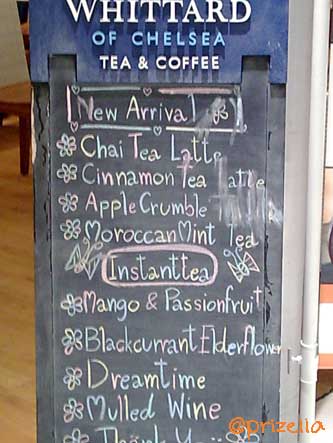 WHITTARD
OF CHELSEA
TEA & COFFEE
New Arrival
Chai Tea Latte
Cinnamon Tea Latte
Apple Crumble
Moroccan Mint Tea
Instant tea
Mango & Passionfruit
Blackcurrant Elderflower
Dreamtime
Mulled Wine
Thank You
@prizella